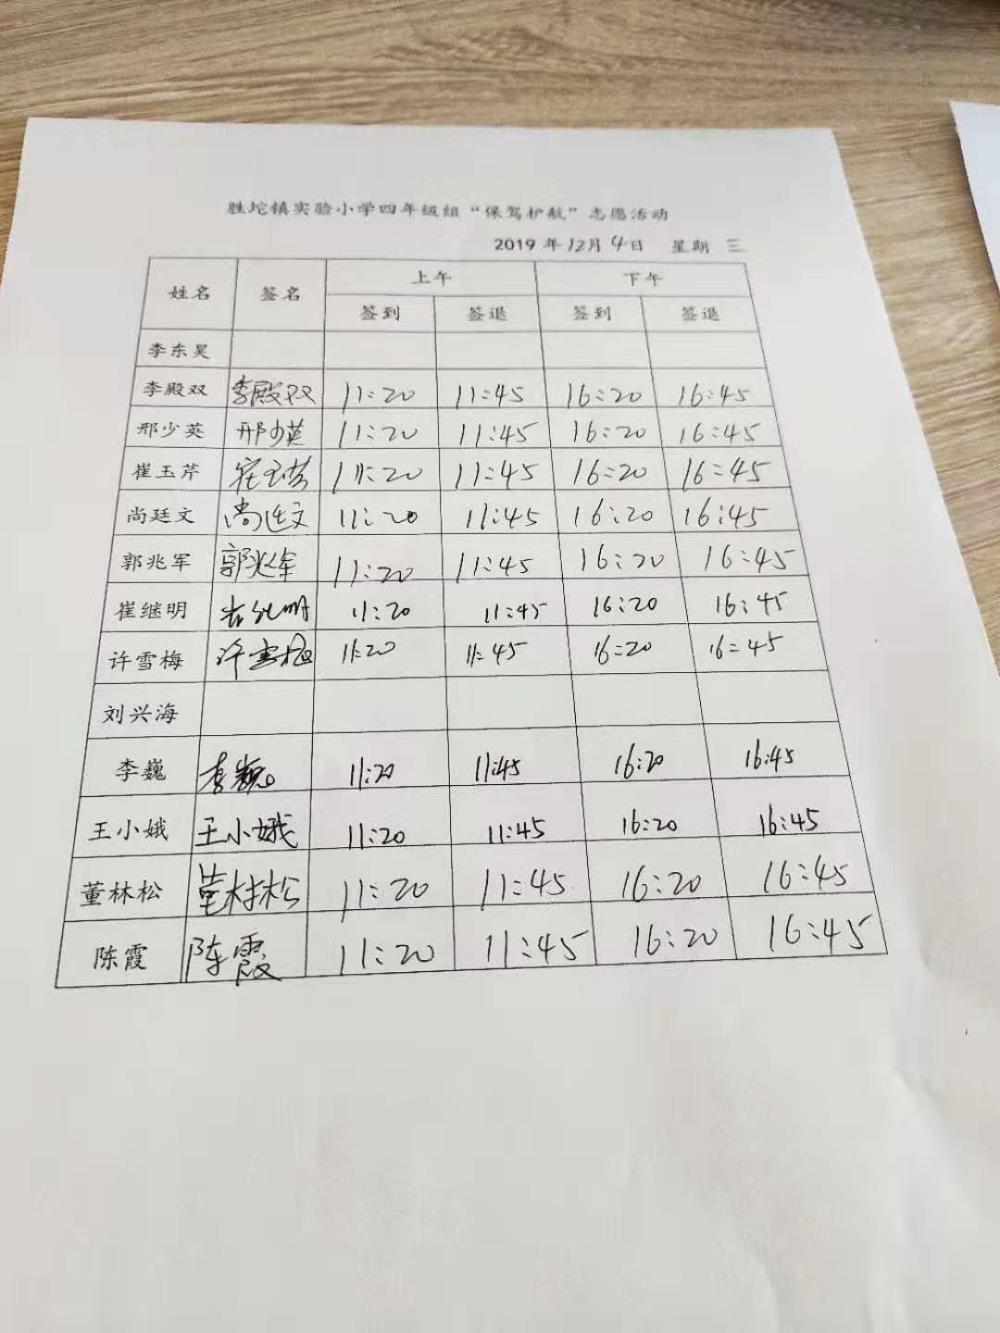 胜坨镇实验小学四年级组“保驾护航”志愿活动
2019 年 12月 4日 星期 三
姓名 签名 上午 下午
签到 签退 签到 签退
李东昊
李殿双 李殿双 11:20 11:45 16:20 16:45
邢少英 邢少英 11:20 11:45 16:20 16:45
崔玉芹 崔玉芹 11:20 11:45 16:20 16:45
尚廷文 尚廷文 11:20 11:45 16:20 16:45
郭兆军 郭兆军 11:20 11:45 16:20 16:45
崔继明 崔继明 11:20 11:45 16:20 16:45
许雪梅 许雪梅 11:20 11:45 16:20 16:45
刘兴海
李巍 李巍 11:20 11:45 16:20 16:45
王小娥 王小娥 11:20 11:45 16:20 16:45
董林松 董林松 11:20 11:45 16:20 16:45
陈霞 陈霞 11:20 11:45 16:20 16:45